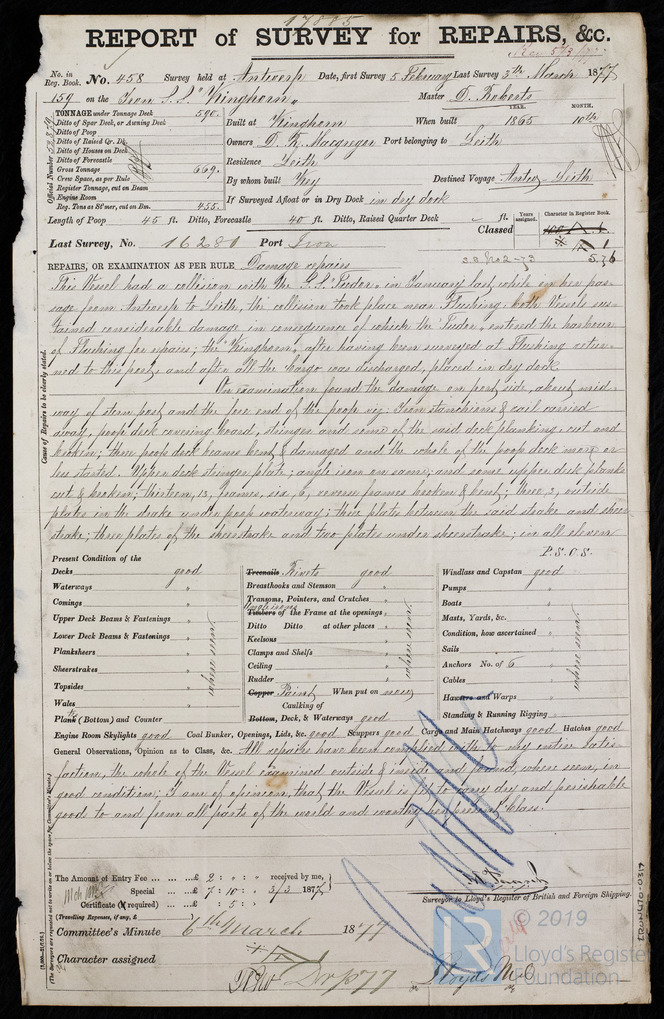 17805
REPORT of SURVEY for REPAIRS, &c.
No. in Reg. Book. No. 458 Survey held at Antwerp Date, first Survey 5 February Last Survey 3th March 1877
159 on the Iron S.S. "Kinghorn" Master D. Roberts
TONNAGE under Tonnage Deck 590.
Ditto of Spar Deck, or Awning Deck
Ditto of Poop
Ditto of Raised Qr. Dk.
Ditto of Houses on Deck
Ditto of Forecastle
Gross Tonnage 669.
Crew Space, as per Rule
Register Tonnage, cut on Beam
Engine Room
Reg. Tons as St'mer, cut on Bm. 455.
Official Number
YEAR. MONTH.
Built at Kinghorn When built 1865 10th
Owners D. R. Macgregor Port belonging to Leith
Residence Leith
By whom built Key Destined Voyage Antw. Leith
If Surveyed Afloat or in Dry Dock in dry dock
Length of Poop 45 ft. Ditto, Forecastle 40 ft. Ditto, Raised Quarter Deck ft.
Classed
Years assigned. Character in Register Book.
Last Survey, No. 16281 Port Iron
5,76
REPAIRS, OR EXAMINATION AS PER RULE Damage repairs
This Vessel had a collision with the S.S. "Tudor" in January last, while on her pas-
sage from Antwerp to Leith, the collision took place near Flushing, both Vessels sus-
tained considerable damage in consequence of which the "Tudor" entered the harbour
of Flushing for repairs; the "Kinghorn" after having been surveyed at Flushing retur-
ned to this port, and after all the Cargo was discharged, placed in dry dock.
On examination found the damage on port side, about mid-
way of stern post and the fore end of the poop viz: Iron stanchions & rail carried
away, poop deck covering board, stringer and some of the said deck planking, cut and
broken; three poop deck beams bent & damaged and the whole of the poop deck more or
less started. Upper deck stringer plate; angle iron on same; and some upper deck planks
cut & broken; thirteen, 13, frames, six, 6, reverse frames broken & bent; three, 3, outside
plates in the strake under poop waterway; three plates between the said strake and sheer
strake; three plates of the sheerstrake and two plates under sheerstrake; in all eleven
P.S.O.S.
Cause of Repairs to be clearly stated.
Present Condition of the
Decks good
Waterways "
Comings "
Upper Deck Beams & Fastenings "
Lower Deck Beams & Fastenings "
Planksheers "
Sheerstrakes "
Topsides "
Wales "
Plank (Bottom) and Counter "
where seen
Treenails Rivets good
Breasthooks and Stemson "
Transoms, Pointers, and Crutches "
Timbers of the Frame at the openings "
Ditto Ditto at other places "
Keelsons "
Clamps and Shelfs "
Ceiling "
Rudder "
where seen
Copper Paint When put on new
Caulking of
Bottom, Deck, & Waterways good
Windlass and Capstan good
Pumps "
Boats "
Masts, Yards, &c. "
Condition, how ascertained "
Sails "
Anchors No. of 6
Cables "
Hawsers and Warps "
Standing & Running Rigging "
where seen
Engine Room Skylights good Coal Bunker, Openings, Lids, &c. good Scuppers good Cargo and Main Hatchways good Hatches good
General Observations, Opinion as to Class, &c. All repairs have been complied with to my entire satis-
faction, the whole of the Vessel examined outside & inside and found, where seen, in
good condition; I am of opinion, that the Vessel is fit to carry dry and perishable
goods to and from all parts of the world and worthy her present Class.
The Amount of Entry Fee £ 2 : " : " received by me,
Special £ 7 : 10 : " 3/3 1877
Certificate (if required) £ " : 5 : "
(Travelling Expenses, if any, £
Surveyor to Lloyd's Register of British and Foreign Shipping.
Committee's Minute 6th March 1877
Character assigned
IRON470-0319
© 2019
LR
Lloyd's Register
Foundation